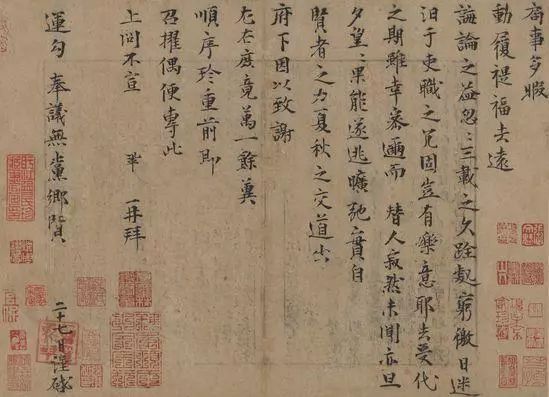 局事多暇
動履禔福去遠
誨論之益忽〻三載之久跧處窮徼日迷
汨于吏職之冗固豈有樂意耶去受代
之期雖幸密邇而替人寂然未聞亦旦
夕望〻果能遂逃曠弛實自
賢者之力夏秋之交道出
府下因以致謝
左右庶竟萬一餘冀
順序珍重前即
召擢偶便專此
上問不宣 鞏再拜
運勾奉議無黨鄉賢
二十七日謹啓